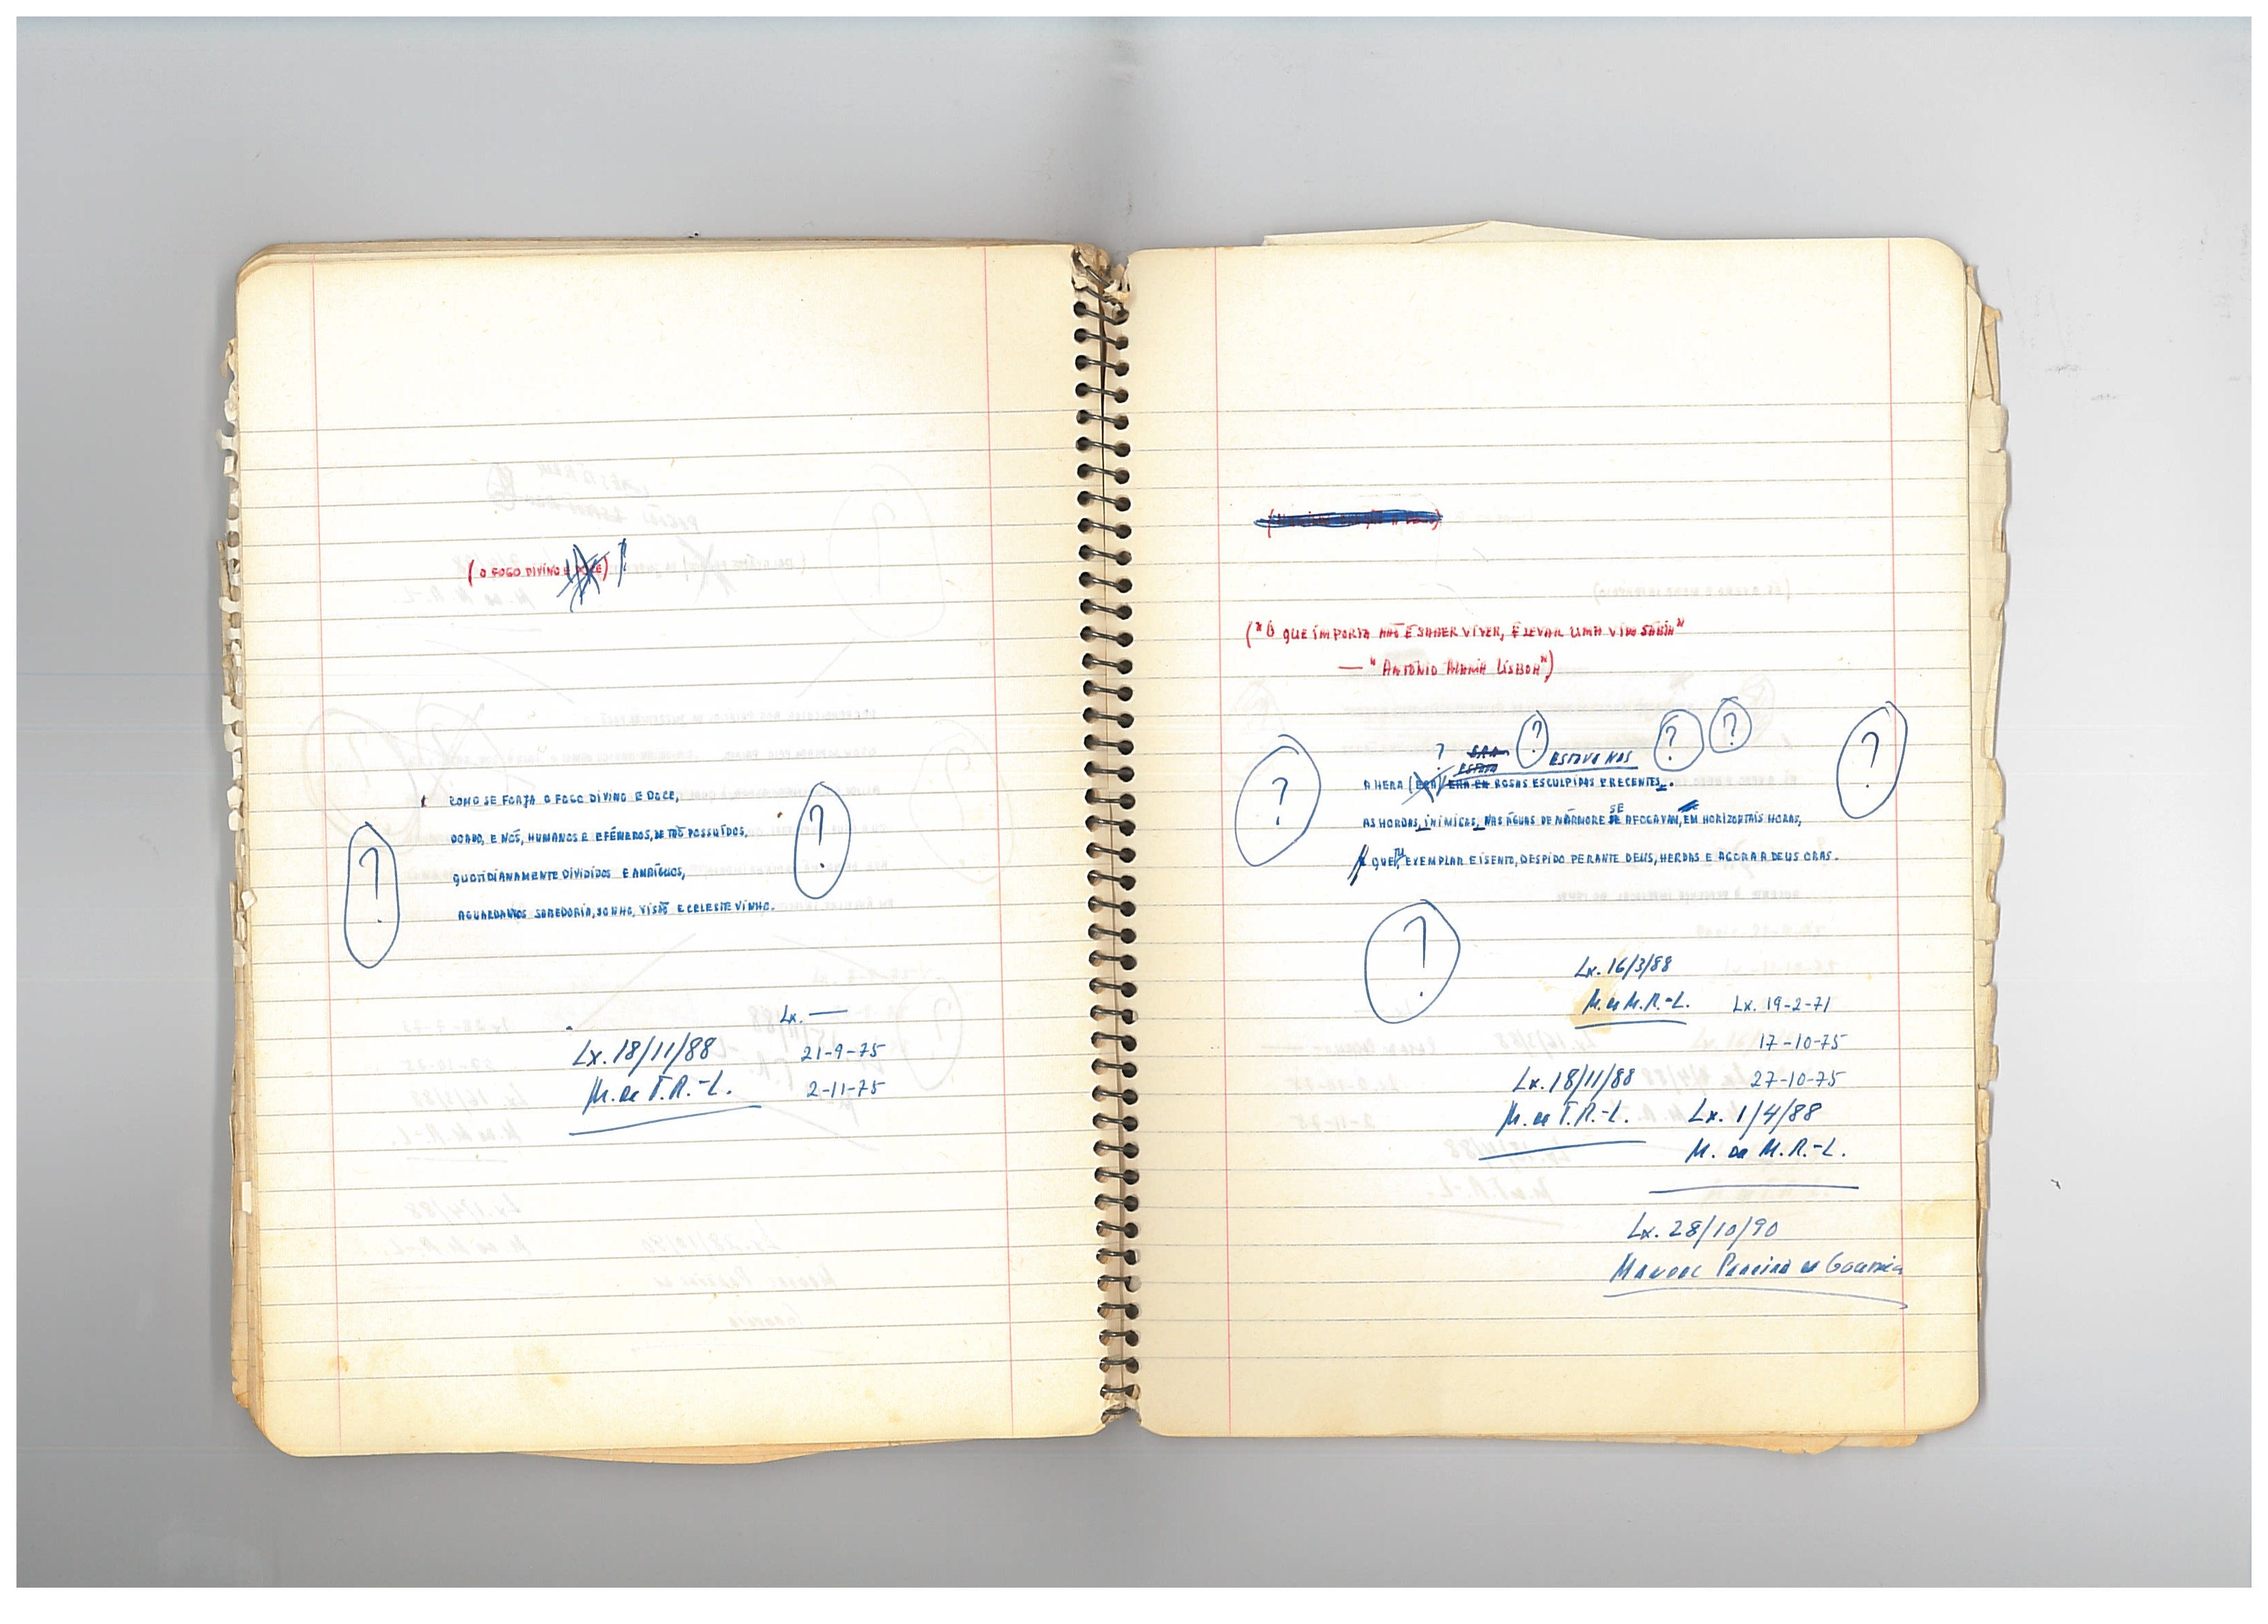 (O FOGO DIVINO E DOCE)
COMO SE FORJA O FOGO DIVINO E DOCE,
DOADO, E NÓS, HUMANOS E EFÉMEROS, DE TÃO POSSUÍDOS,
QUOTIDIANAMENTE DIVIDIDOS E AMBÍGUOS,
AGUARDAMOS SABEDORIA, SONHO, VISÃO E CELESTE VINHO.
?
?
Lx. —
Lx. 18/11/88
21-9-75
M. de T. R.-L.
2-11-75
("O QUE IMPORTA NÃO É SABER VIVER, É LEVAR UMA VIDA SÁBIA"
— "ANTÓNIO MARIA LISBOA")
? ? ? ?
? ESTAVA NAS
?
A HERA (ERA) ERA EM ROSAS ESCULPIDAS E RECENTES.
SE
AS HORDAS, INIMIGAS, NAS ÁGUAS DE MÁRMORE SE AFOGAVAM, EM HORIZONTAIS HORAS,
TU
QUE, EXEMPLAR E ISENTO, DESPIDO PERANTE DEUS, HERDAS E AGORA A DEUS ORAS.
?
Lx. 16/3/88
M. de M. R.-L.
Lx. 19-2-71
17-10-75
Lx. 18/11/88
27-10-75
M. de T. R.-L.
Lx. 1/4/88
M. de M. R.-L.
Lx. 28/10/90
Manoel Pereira de Gouveia